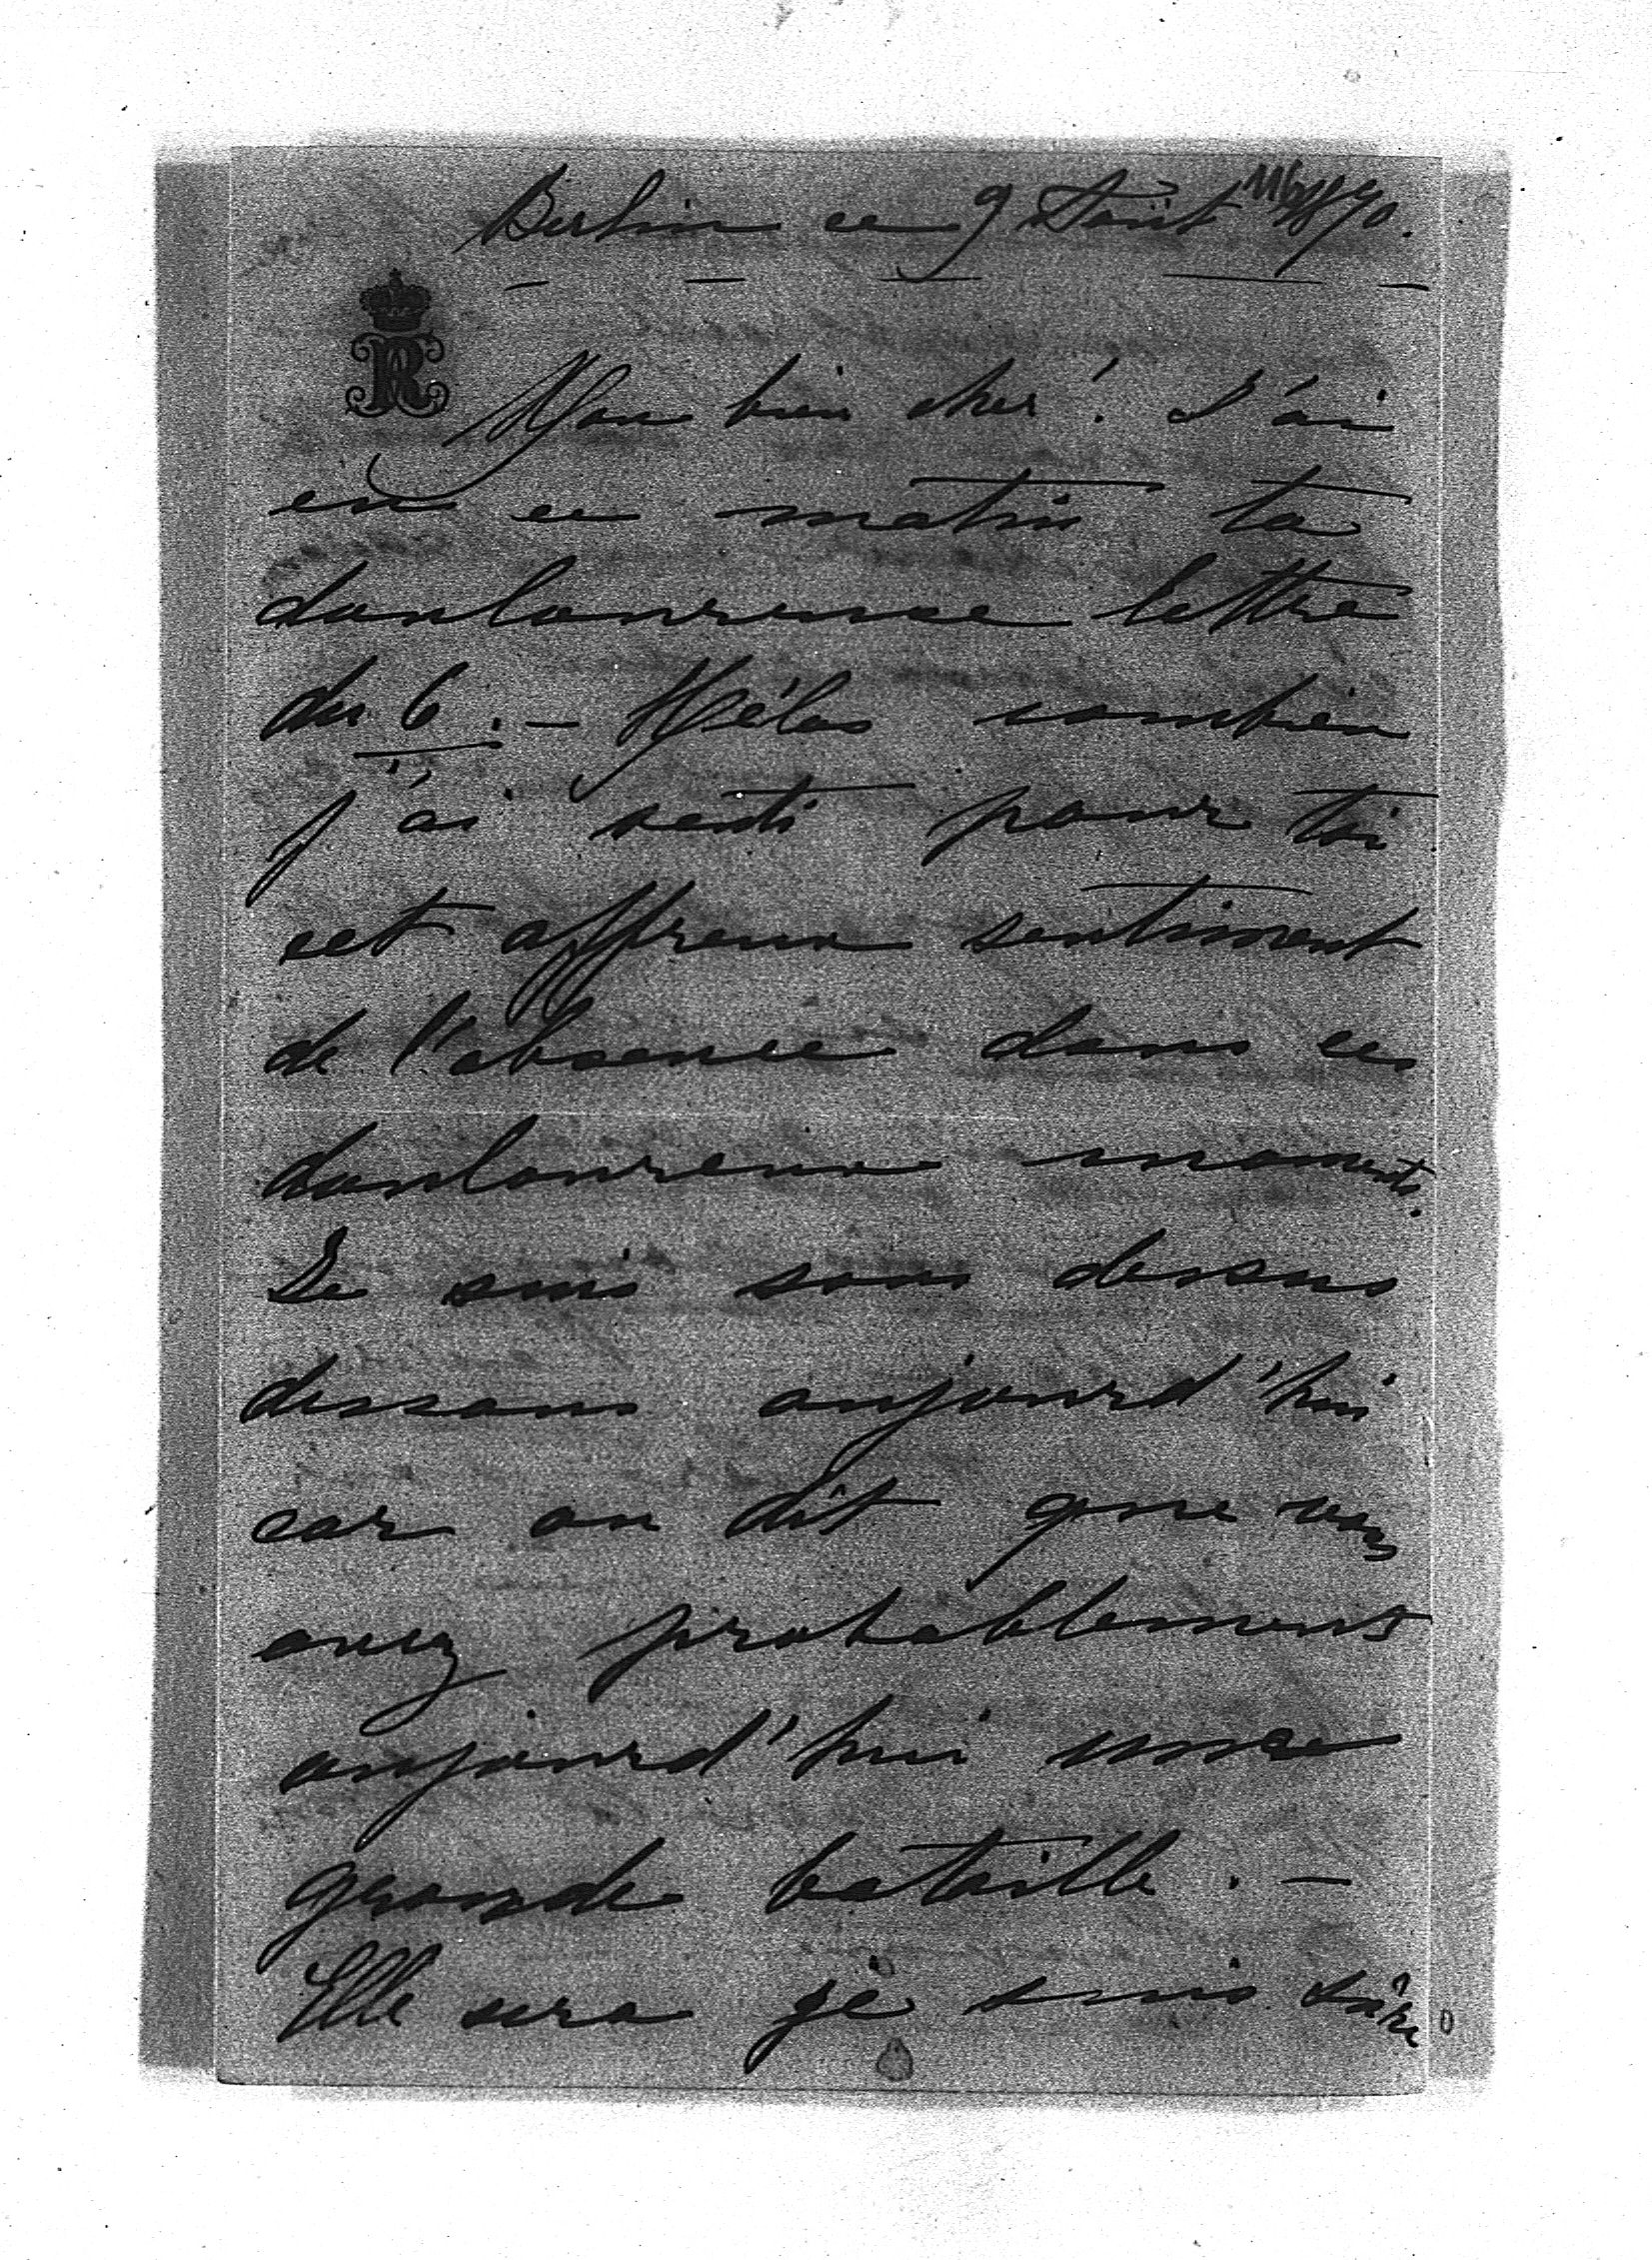 Berlin ce 9 Août 1870.
Mon bien cher! J'ai
eu ce matin ta
douloureuse lettre
du 6. – Hélas combien
j'ai senti pour toi
cet affreux sentiment
de l'absence dans ces
douloureux moments.
Je suis sous dessus
dessous aujourd'hui
car on dit que vous
avez probablement
aujourd'hui une
grande bataille. –
Elle sera je suis sûre